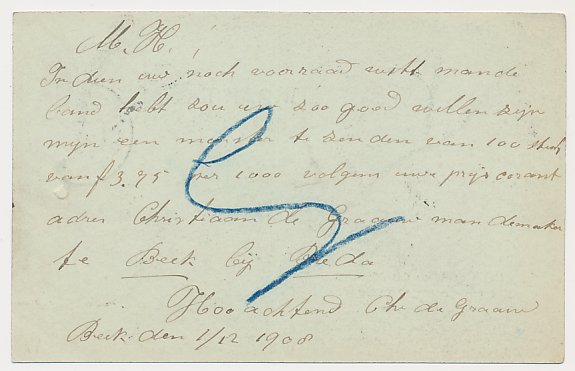 M. H.,
Indien uw noch voorraad witte mande
band hebt zou uw zoo good willen zijn
mijn een monster te zenden van 100 stuk
van f 3.75 per 1000 volgens uwe prijs corant
adres Christiaan de Graauw mandemaker
te Beek bij Breda
Hoogachtend Chr de Graauw
Beek den 1/12 1908